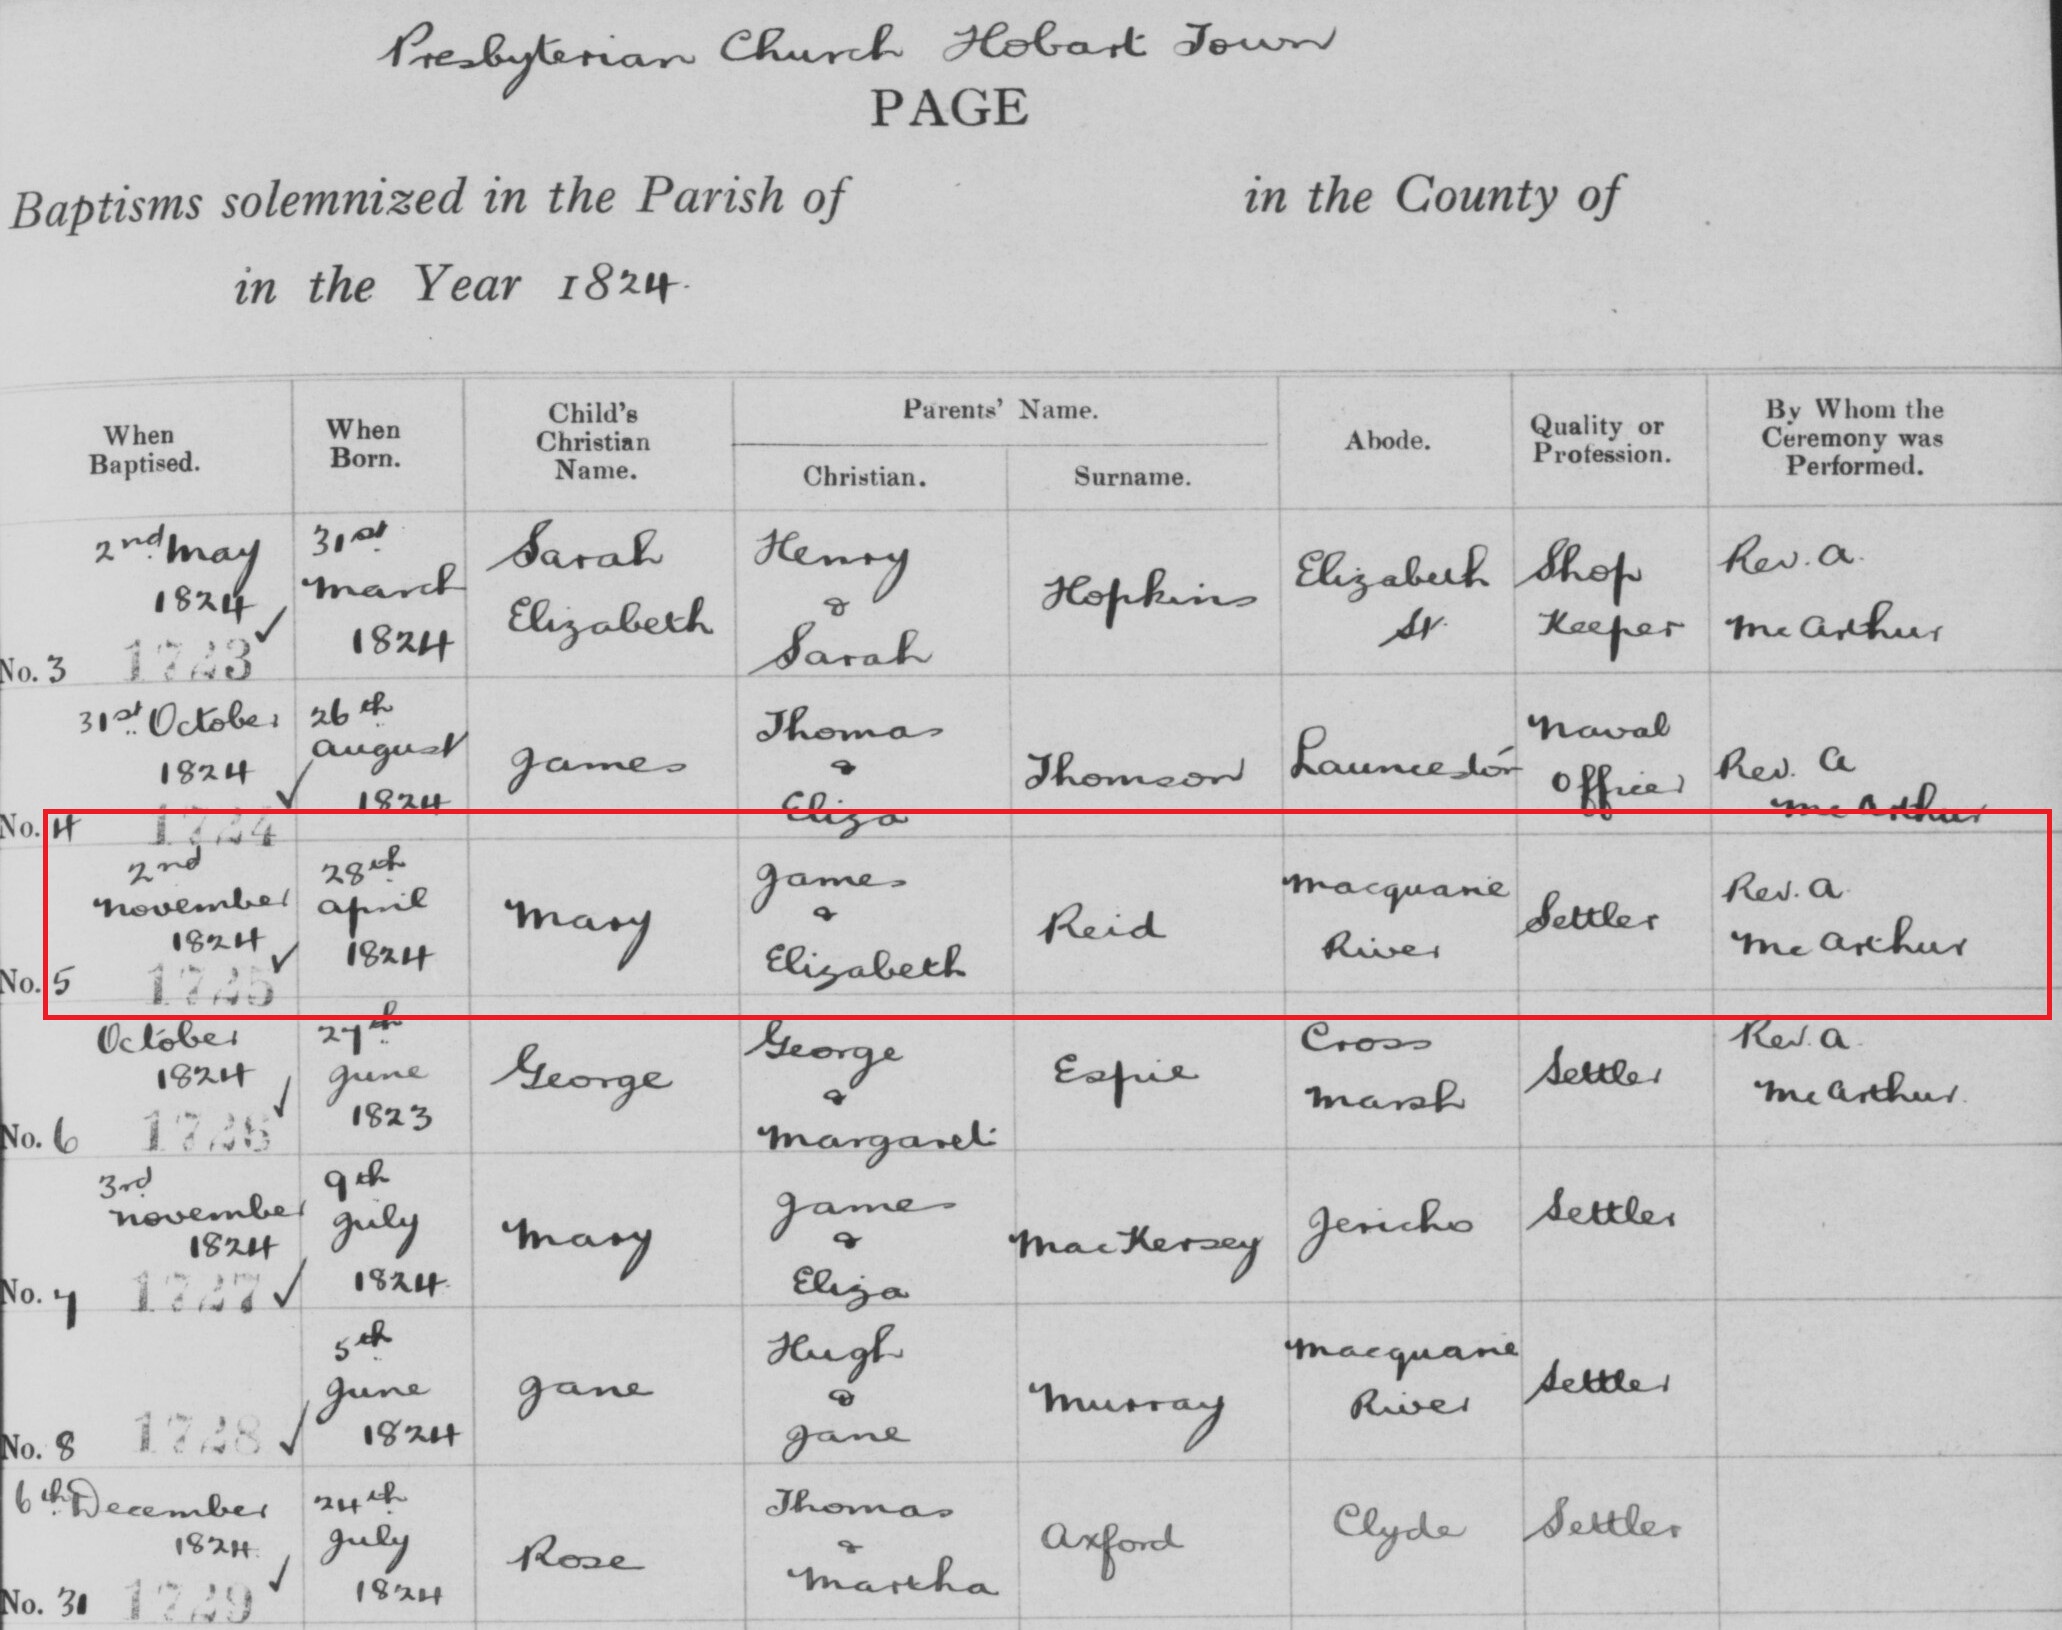 Presbyterian Church Hobart Town
PAGE
Baptisms solemnized in the Parish of in the County of
in the Year 1824.
When Baptised. When Born. Child's Christian Name. Parents' Name. Christian. Surname. Abode. Quality or Profession. By Whom the Ceremony was Performed.
No. 3 2nd May 1824 1723 31st March 1824 Sarah Elizabeth Henry & Sarah Hopkins Elizabeth St. Shop Keeper Rev. A. McArthur
No. 4 31st October 1824 1724 26th August 1824 James Thomas & Eliza Thomson Launceston Naval Officer Rev. A McArthur
No. 5 2nd November 1824 1725 28th April 1824 Mary James & Elizabeth Reid Macquarie River Settler Rev. A. McArthur
No. 6 October 1824 1726 27th June 1823 George George & Margaret Espie Cross Marsh Settler Rev. A. McArthur.
No. 7 3rd November 1824 1727 9th July 1824. Mary James & Eliza MacKersey Jericho Settler
No. 8 1728 5th June 1824 Jane Hugh & Jane Murray Macquarie River Settler
No. 31 6th December 1824. 1729 24th July 1824 Rose Thomas & Martha Axford Clyde Settler